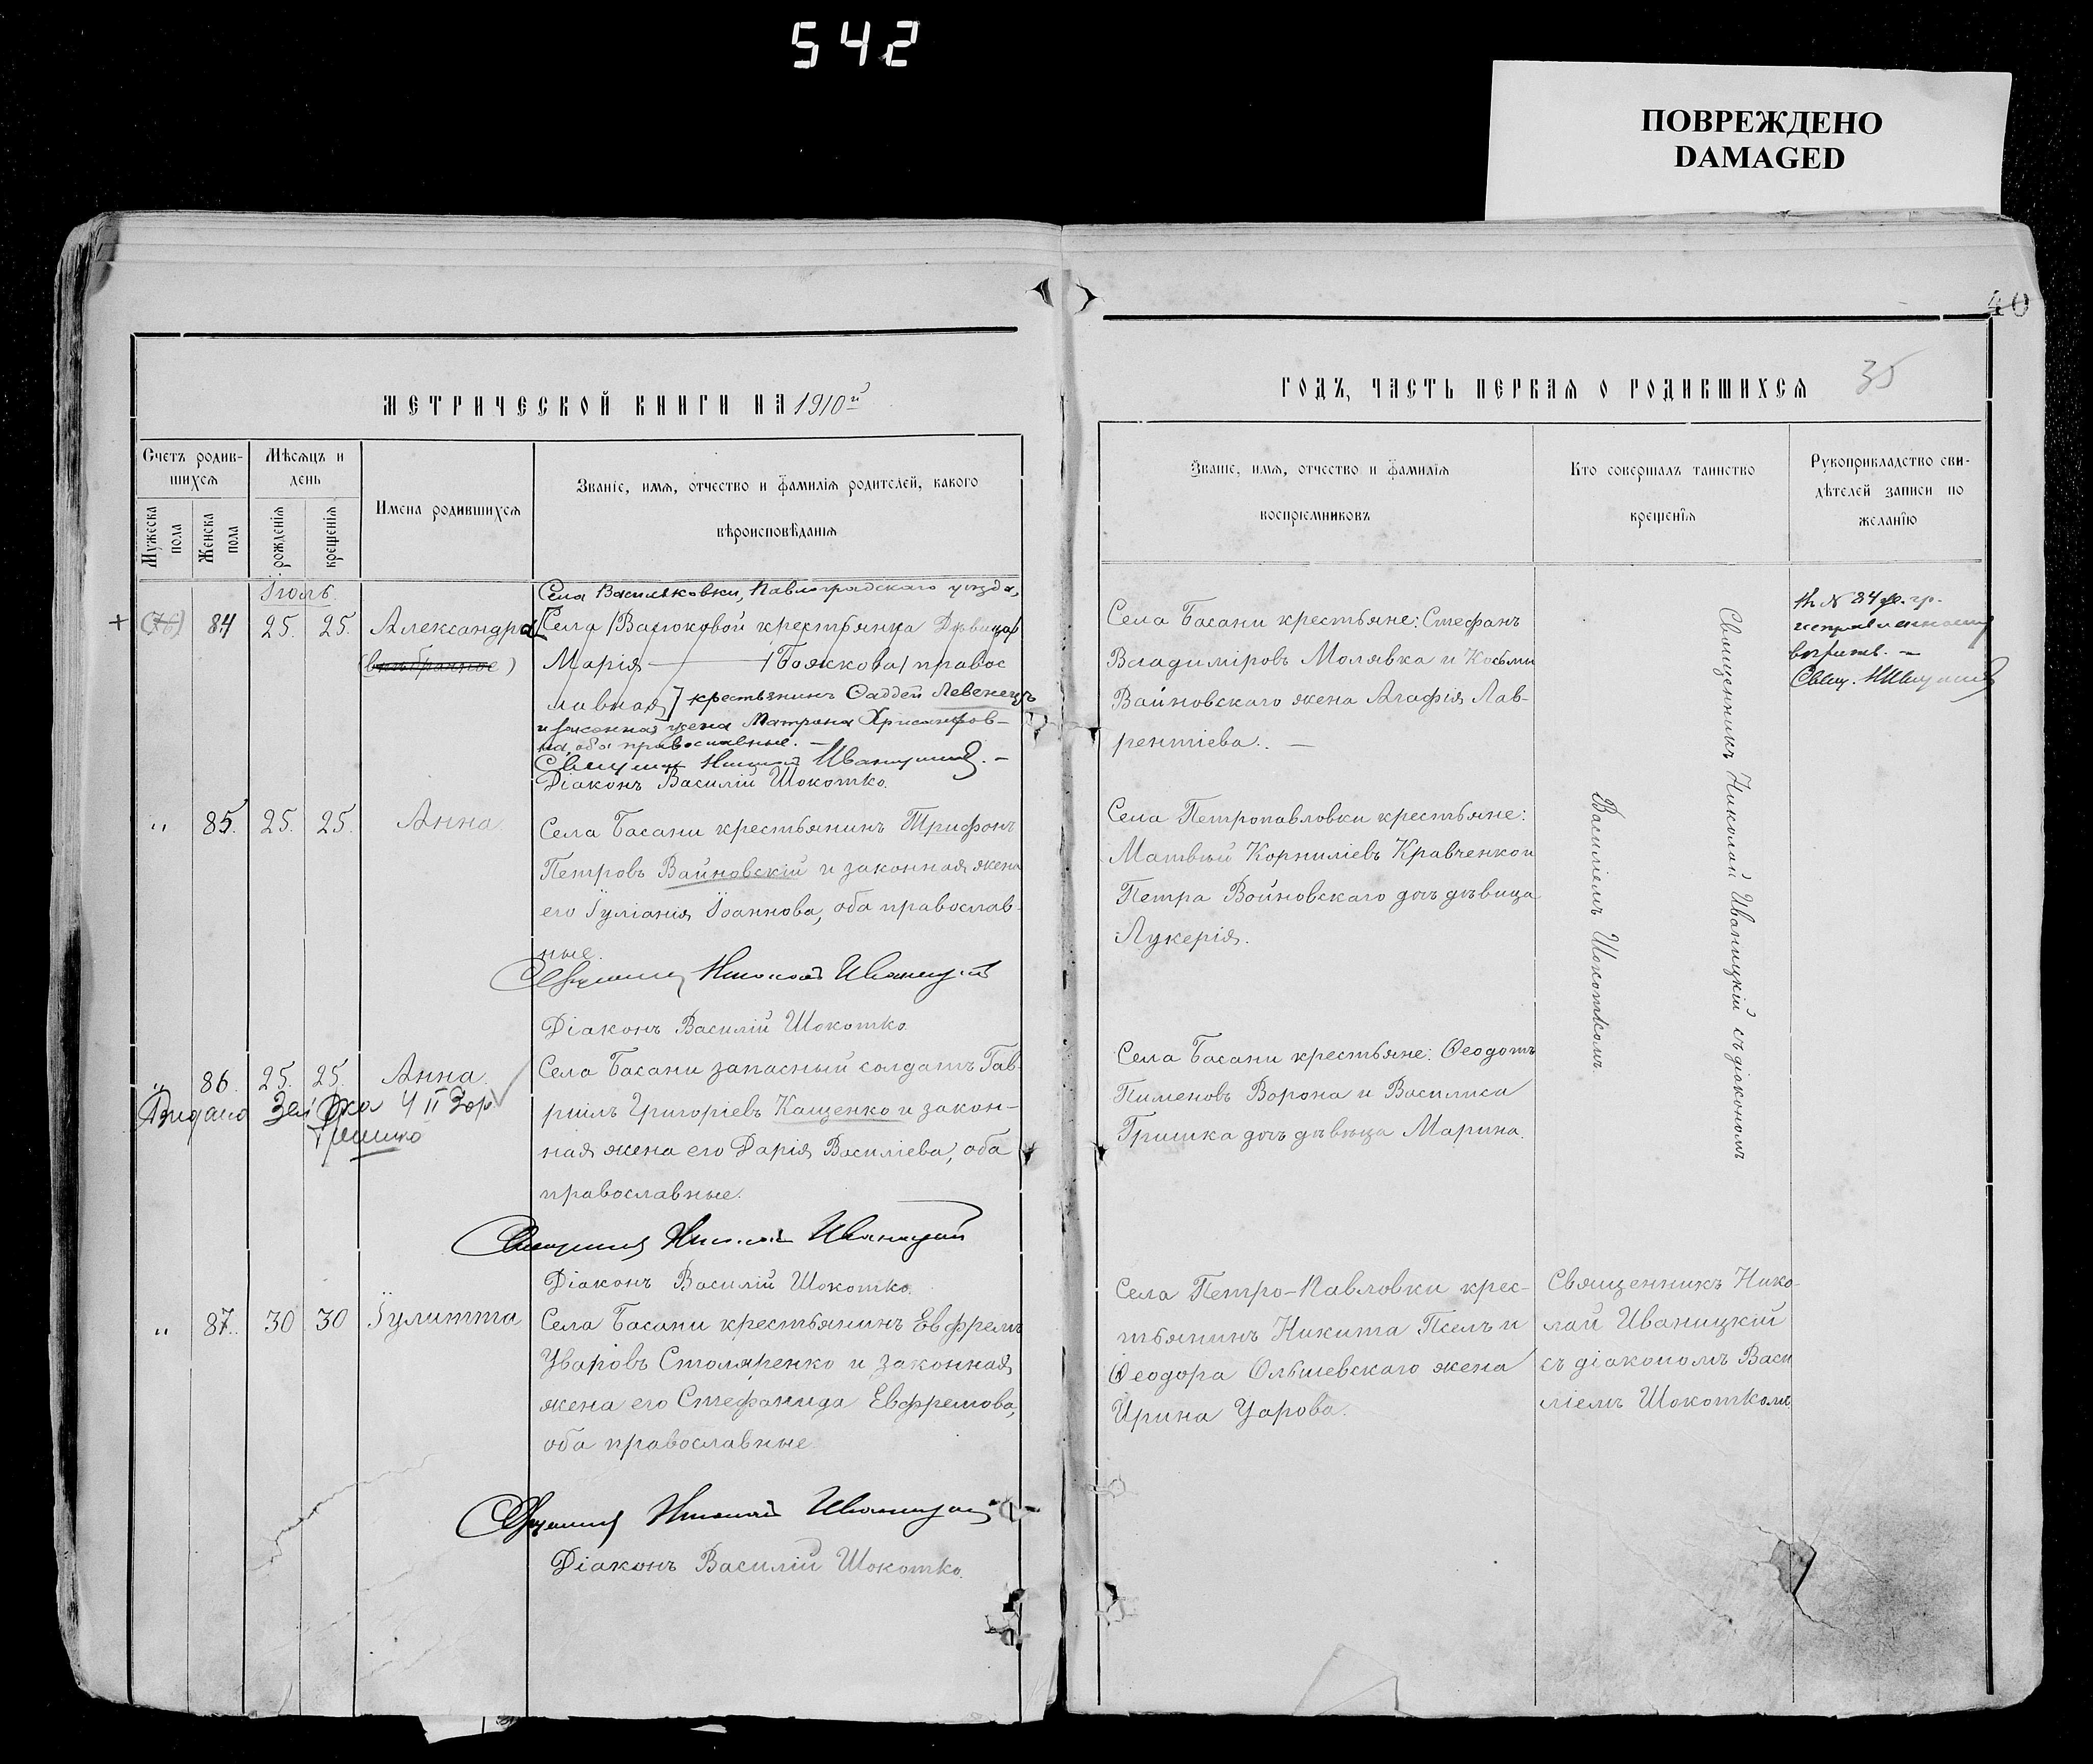 542
ПОВРЕЖДЕНО
DAMAGED
40
35
МЕТРИЧЕСКОЙ КНИГИ НА 1910й
Счетъ родив-
шихся
Мѣсяцъ и
день
Имена родившихся
Званіе, имя, отчество и фамилія родителей, какого
вѣроисповѣданія
Мужеска
пола
Женска
пола
рожденія
крещенія
Іюль.
Села Васильковки, Павлоградскаго уѣзда,
84 25. 25. Александра [Села /Васюковой крестьянка Дѣвица/
(внѣбрачное) Марія /Боякова/ правос
лавная] крестьянинъ Фаддей Левенецъ
и законная жена Матрона Хрисанфов-
на, оба православные. —
Священникъ Николай Иваницкій. —
Діаконъ Василій Шокотко.
" 85. 25. 25. Анна. Села Басани крестьянинъ Трифонъ
Петровъ Войновскій и законная жена
его Іуліанія Іоаннова, оба православ-
ные.
Священникъ Николай Иваницкій
Діаконъ Василій Шокотко.
" 86. 25. 25. Анна. Села Басани запасный солдатъ Гав-
ріилъ Григоріевъ Кащенко и закон-
ная жена его Дарія Василіева, оба
православные.
Священникъ Николай Иваницкій
Діаконъ Василій Шокотко.
" 87. 30 30 Іулитта Села Басани крестьянинъ Евфремъ
Уваровъ Столяренко и законная
жена его Стефанида Евфремова,
оба православные.
Священникъ Николай Иваницкій
Діаконъ Василій Шокотко.
ГОДЪ, ЧАСТЬ ПЕРВАЯ О РОДИВШИХСЯ
Званіе, имя, отчество и фамилія
воспріемниковъ
Кто совершалъ таинство
крещенія
Рукоприкладство сви-
дѣтелей записи по
желанію
Села Басани крестьяне: Стефанъ
Владиміровъ Молявка и Косьмы
Войновскаго жена Агафія Лав-
рентіева. —
Села Петропавловки крестьяне:
Матвѣй Корниліевъ Кравченко и
Петра Войновскаго дочь дѣвица
Лукерія.
Села Басани крестьяне: Ѳеодотъ
Пименовъ Ворона и Василиса
Гришка дочь дѣвица Марина.
Села Петро-Павловки крес-
тьянинъ Никита Пселъ и
Ѳеодора Ольшевскаго жена
Ирина Уарова.
Священникъ Николай Иваницкій съ діакономъ
Василіемъ Шокоткомъ.
Священникъ Нико-
лай Иваницкій
съ діакономъ Васи
ліемъ Шокоткомъ
№ 84
Свящ. Н. Иваницкій